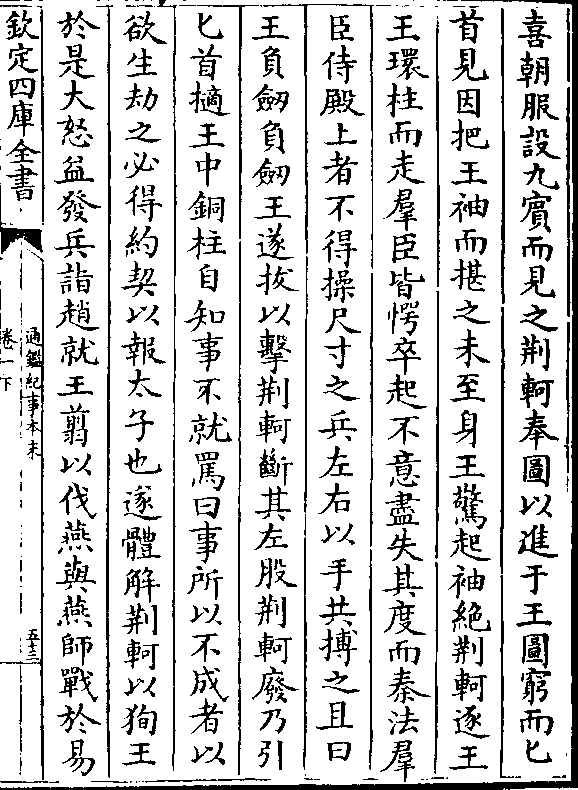 喜朝服設九賓而見之荆軻奉圖以進于王圖窮而匕
首見因把王袖而揕之未至身王驚起袖絶荆軻逐王
王環柱而走羣臣皆愕卒起不意盡失其度而秦法羣
臣侍殿上者不得操尺寸之兵左右以手共搏之且曰
王負劒負劒王遂拔以擊荆軻斷其左股荆軻廢乃引
匕首擿王中銅柱自知事不就罵曰事所以不成者以
欲生劫之必得約契以報太子也遂體解荆軻以狥王
於是大怒益發兵詣趙就王翦以伐燕與燕師戰於易
欽定四庫全書
通鑑紀事本末
卷一下
五十三